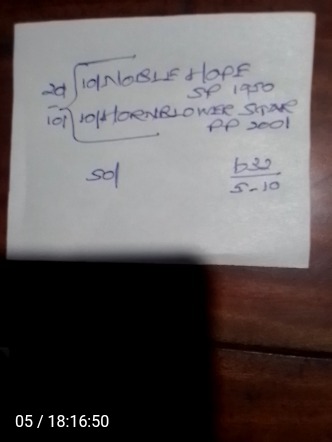 20/ 10/NOBLE HOPE
SP 1950
10/ 10/HORNBLOWER STAR
PP 2001
50/
b32
5-10
05 / 18:16:50